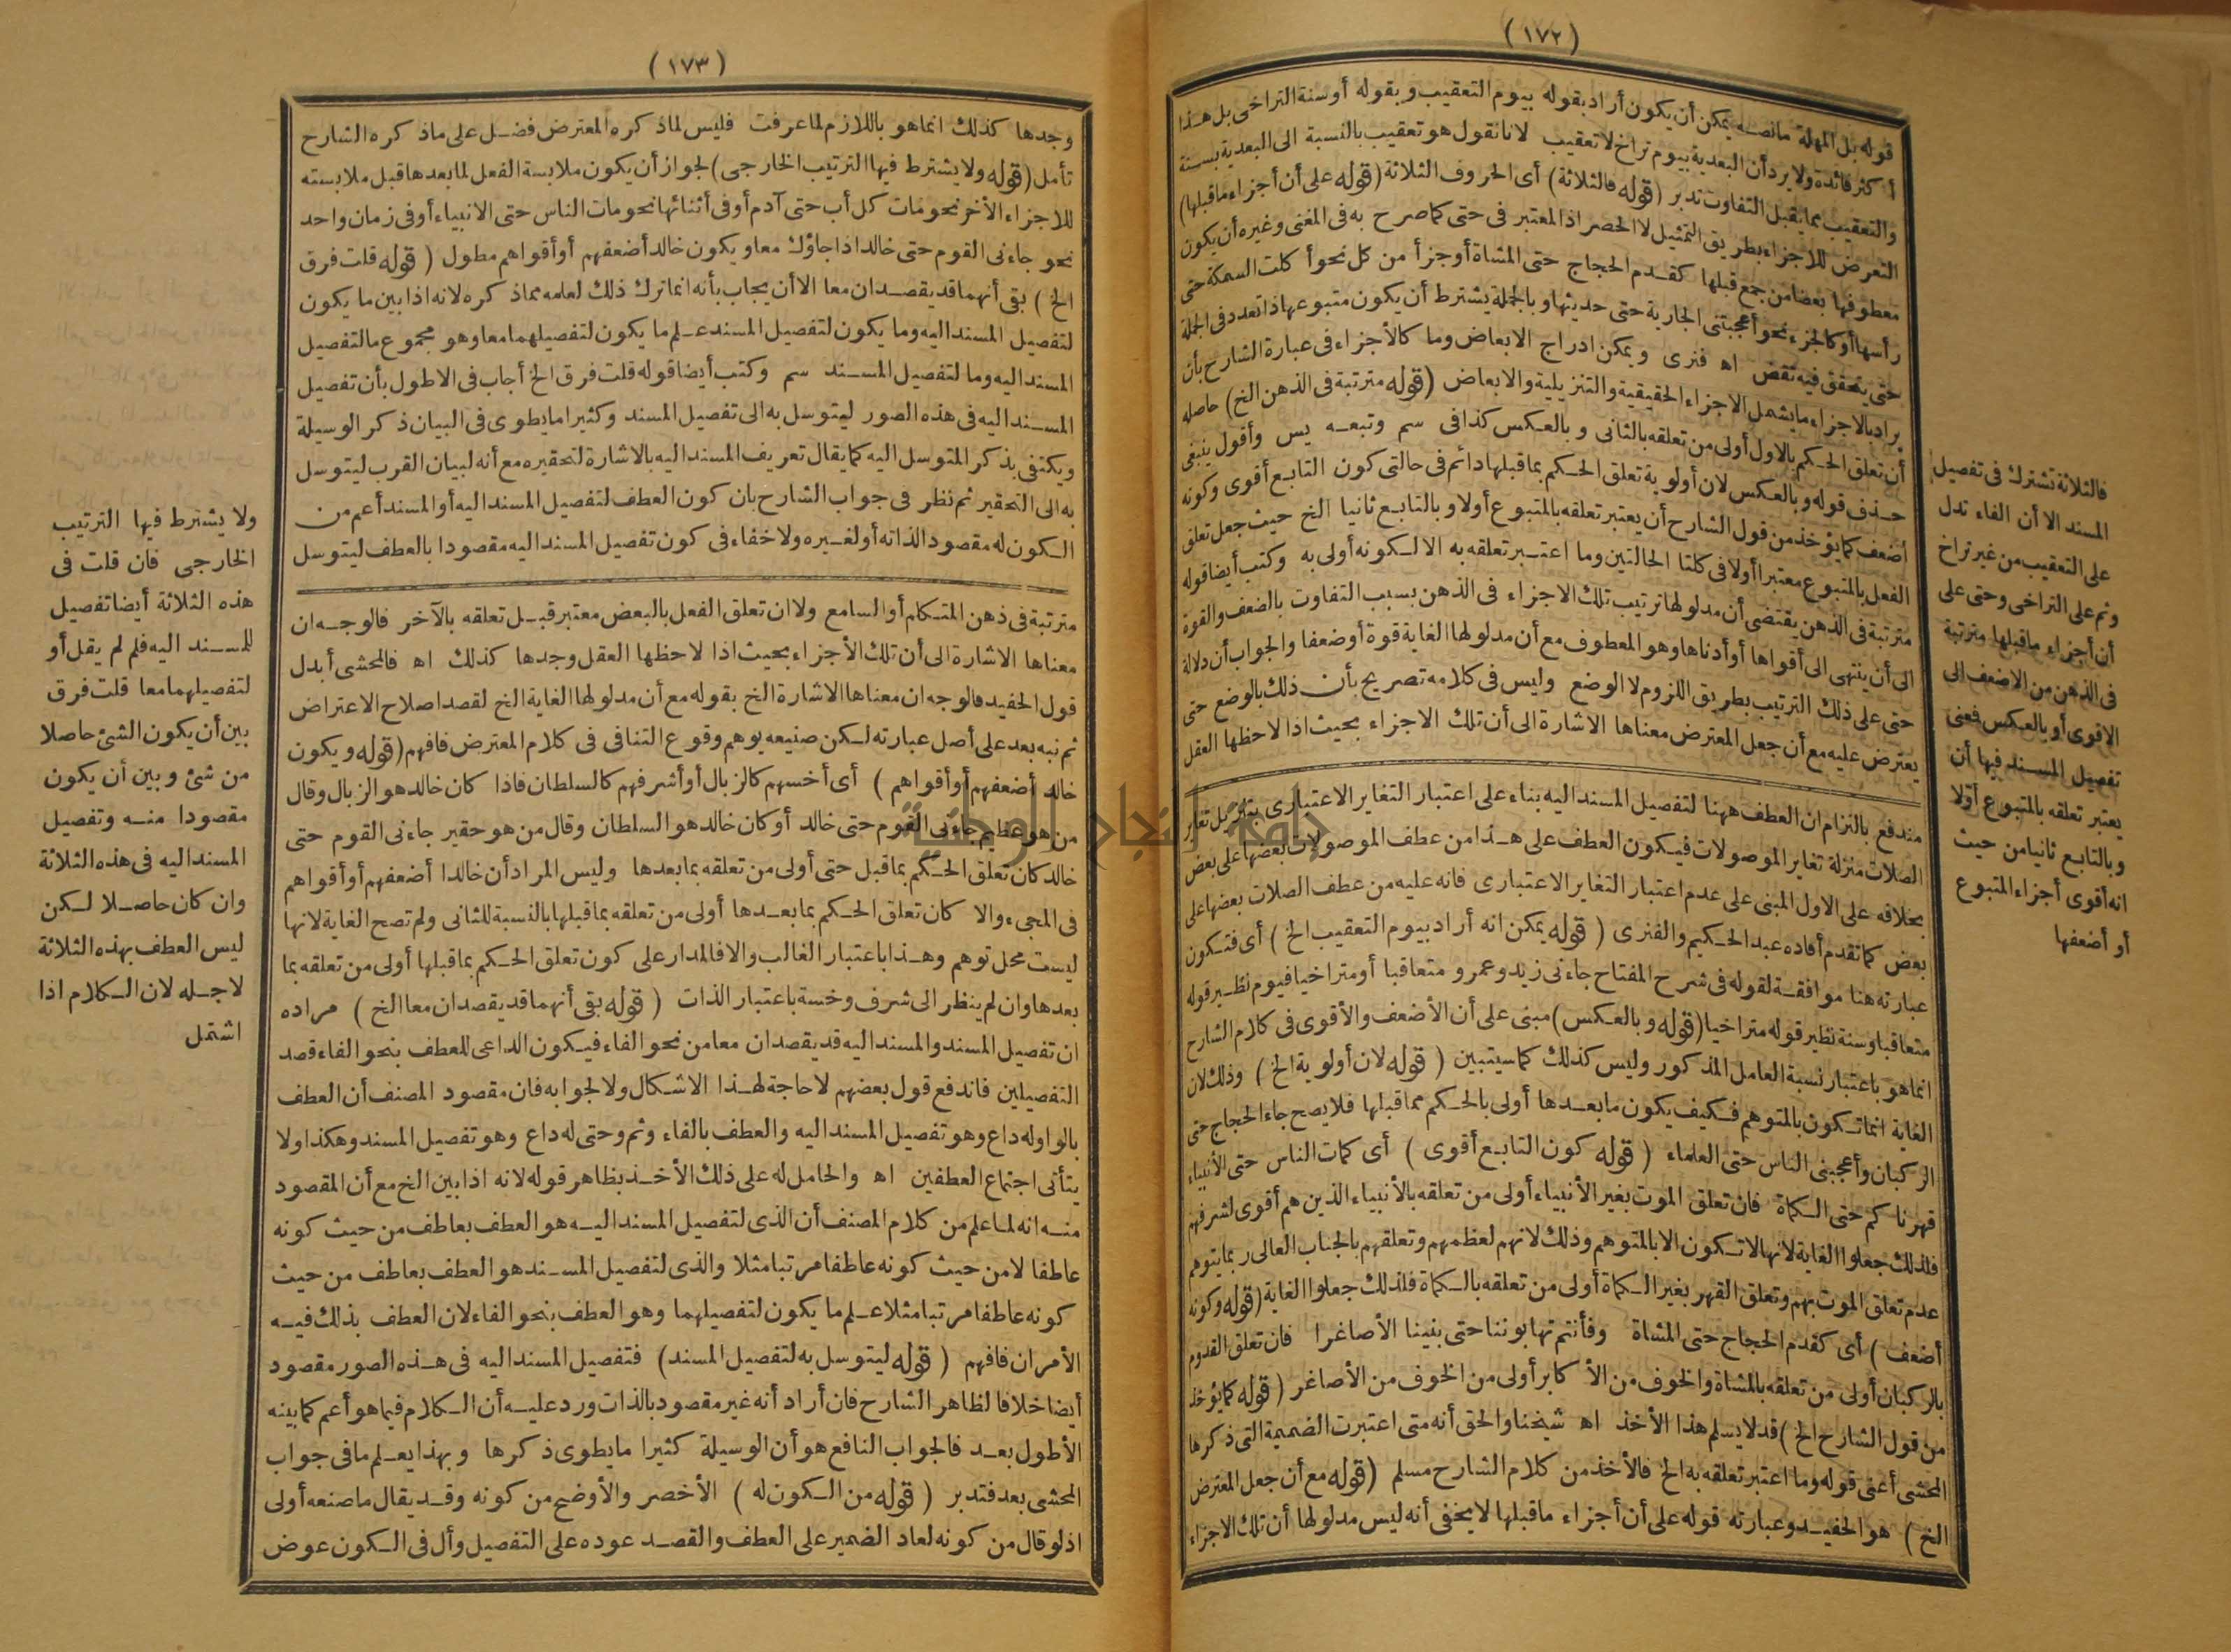 (١٧٢)
قوله بل المهلة مانصه يمكن أن يكون أراد بقوله بيوم التعقيب وبقوله أوسنة التراخى بل هذا
أكثر فائدة ولا يرد أن البعدية بيوم تراخ لا تعقيب لانا نقول هو تعقيب بالنسبة الى البعدية بسنة
والتعقيب مما يقبل التفاوت تدبر (قوله فالثلاثة) أى الحروف الثلاثة (قوله على أن أجزاء ماقبلها)
التعرض للاجزاء بطريق التمثيل لا الحصر اذ المعتبر فى حتى كما صرح به فى المغنى وغيره أن يكون
معطوفها بعضا من جمع قبلها كقدم الحجاج حتى المشاة أو جزأ من كل نحو أكلت السمكة حتى
رأسها أو كالجزء نحو أعجبتنى الجارية حتى حديثها وبالجملة يشترط أن يكون متبوعها ذا تعدد فى الجملة
حتى يتحقق فيه تقض اه فنرى ويمكن ادراج الابعاض وما كالأجزاء فى عبارة الشارح بأن
يراد بالاجزاء ما يشمل الاجزاء الحقيقية والتنزيلية والابعاض (قوله مترتبة فى الذهن الخ) حاصله
أن تعلق الحكم بالاول أولى من تعلقه بالثانى وبالعكس كذا فى سم وتبعه يس وأقول ينبغى
حذف قوله وبالعكس لان أولوية تعلق الحكم بما قبلها دائم فى حالتى كون التابع أقوى وكونه
أضعف كما يؤخذ من قول الشارح أن يعتبر تعلقه بالمتبوع أولا وبالتابع ثانيا الخ حيث جعل تعلق
الفعل بالمتبوع معتبرا أولا فى كلتا الحالتين وما اعتبر تعلقه به الا لكونه أولى به وكتب أيضا قوله
مترتبة فى الذهن يقتضى أن مدلولها ترتيب تلك الاجزاء فى الذهن بسبب التفاوت بالضعف والقوة
الى أن ينتهى الى أقواها أو أدناها وهو المعطوف مع أن مدلولها الغاية قوة أو ضعفا والجواب أن دلالة
حتى على ذلك الترتيب بطريق اللزوم لا الوضع وليس فى كلامه تصريح بأن ذلك بالوضع حتى
يعترض عليه مع أن جعل المعترض معناها الاشارة الى أن تلك الاجزاء بحيث اذا لاحظها العقل
مندفع بالتزام ان العطف ههنا لتفصيل المسند اليه بناء على اعتبار التغاير الاعتبارى بتنزيل تغاير
الصلات منزلة تغاير الموصولات فيكون العطف على هذا من عطف الموصولات بعضها على بعض
بخلافه على الاول المبنى على عدم اعتبار التغاير الاعتبارى فانه عليه من عطف الصلات بعضها على
بعض كما تقدم أفاده عبد الحكيم والفنرى (قوله يمكن انه أراد بيوم التعقيب الخ) أى فتكون
عبارته هنا موافقة لقوله فى شرح المفتاح جاءنى زيد وعمرو متعاقبا أو متراخيا فيوم نظير قوله
متعاقبا وسنة نظير قوله متراخيا (قوله وبالعكس) مبنى على أن الأضعف والأقوى فى كلام الشارح
انما هو باعتبار نسبة العامل المذكور وليس كذلك كما سيتبين (قوله لان أولوية الخ) وذلك لان
الغاية انما تكون بالمتوهم فكيف يكون ما بعدها أولى بالحكم مما قبلها فلا يصح جاء الحجاج حتى
الركبان وأعجبنى الناس حتى العلماء (قوله كون التابع أقوى) أى كمات الناس حتى الأنبياء
قهرناكم حتى الكماة فان تعلق الموت بغير الأنبياء أولى من تعلقه بالأنبياء الذين هم أقوى لشرفهم
فلذلك جعلوا الغاية لانها لا تكون الا بالمتوهم وذلك لانهم لعظمهم وتعلقهم بالجناب العالى ربما يتوهم
عدم تعلق الموت بهم وتعلق القهر بغير الكماة أولى من تعلقه بالكماة فلذلك جعلوا الغاية (قوله وكونه
أضعف) أى كقدم الحجاج حتى المشاة وفأنتم تهابوننا حتى بنينا الأصاغرا فان تعلق القدوم
بالركبان أولى من تعلقه بالمشاة والخوف من الأكابر أولى من الخوف من الأصاغر (قوله كما يؤخذ
من قول الشارح الخ) قد لا يسلم هذا الأخذ اه شيخنا والحق أنه متى اعتبرت الضميمة التى ذكرها
المحشى أعنى قوله وما اعتبر تعلقه به الخ فالأخذ من كلام الشارح مسلم (قوله مع أن جعل المعترض
الخ) هو الحفيد وعبارته قوله على أن أجزاء ماقبلها لا يخفى أنه ليس مدلولها أن تلك الاجزاء
فالثلاثة تشترك فى تفصيل
المسند الا أن الفاء تدل
على التعقيب من غير تراخ
وثم على التراخى وحتى على
أن أجزاء ماقبلها مترتبة
فى الذهن من الاضعف الى
الاقوى أو بالعكس فمعنى
تفصيل المسند فيها أن
يعتبر تعلقه بالمتبوع أوّلا
وبالتابع ثانيا من حيث
انه أقوى أجزاء المتبوع
أو أضعفها
(١٧٣)
وجدها كذلك انما هو باللازم لما عرفت فليس لما ذكره المعترض فضل على ما ذكره الشارح
تأمل (قوله ولا يشترط فيها الترتيب الخارجى) لجواز أن يكون ملابسة الفعل لما بعدها قبل ملابسته
للاجزاء الأخر نحو مات كل أب حتى آدم أو فى أثنائها نحو مات الناس حتى الانبياء أو فى زمان واحد
نحو جاءنى القوم حتى خالد اذا جاؤك معا ويكون خالد أضعفهم أو أقواهم مطول (قوله قلت فرق
الخ) بقى أنهما قد يقصدان معا الا أن يجاب بأنه انما ترك ذلك لعلمه مما ذكره لانه اذا بين ما يكون
لتفصيل المسند اليه وما يكون لتفصيل المسند علم ما يكون لتفصيلهما معا وهو مجموع ما لتفصيل
المسند اليه وما لتفصيل المسند سم وكتب أيضا قوله قلت فرق الخ أجاب فى الاطول بأن تفصيل
المسند اليه فى هذه الصور ليتوسل به الى تفصيل المسند وكثيرا ما يطوى فى البيان ذكر الوسيلة
ويكتفى بذكر المتوسل اليه كما يقال تعريف المسند اليه بالاشارة لتحقيره مع أنه لبيان القرب ليتوسل
به الى التحقير ثم نظر فى جواب الشارح بان كون العطف لتفصيل المسند اليه أو المسند أعم من
الكون له مقصودا لذاته أو لغيره ولا خفاء فى كون تفصيل المسند اليه مقصودا بالعطف ليتوسل
مترتبة فى ذهن المتكلم أو السامع ولا ان تعلق الفعل بالبعض معتبر قبل تعلقه بالآخر فالوجه ان
معناها الاشارة الى أن تلك الأجزاء بحيث اذا لاحظها العقل وجدها كذلك اه فالمحشى أبدل
قول الحفيد فالوجه ان معناها الاشارة الخ بقوله مع أن مدلولها الغاية الخ لقصد اصلاح الاعتراض
ثم نبه بعد على أصل عبارته لكن صنيعه يوهم وقوع التنافى فى كلام المعترض فافهم (قوله ويكون
خالد أضعفهم أو أقواهم) أى أخسهم كالزبال أو أشرفهم كالسلطان فاذا كان خالد هو الزبال وقال
من هو عظيم جاءنى القوم حتى خالد أو كان خالد هو السلطان وقال من هو حقير جاءنى القوم حتى
خالد كان تعلق الحكم بما قبل حتى أولى من تعلقه بما بعدها وليس المراد أن خالدا أضعفهم أو أقواهم
فى المجىء والا كان تعلق الحكم بما بعدها أولى من تعلقه بما قبلها بالنسبة للثانى ولم تصح الغاية لانها
ليست محل توهم وهذا باعتبار الغالب والا فالمدار على كون تعلق الحكم بما قبلها أولى من تعلقه بما
بعدها وان لم ينظر الى شرف وخسة باعتبار الذات (قوله بقى أنهما قد يقصدان معا الخ) مراده
ان تفصيل المسند والمسند اليه قد يقصدان معا من نحو الفاء فيكون الداعى للعطف بنحو الفاء قصد
التفصيلين فاندفع قول بعضهم لا حاجة لهذا الاشكال ولا لجوابه فان مقصود المصنف أن العطف
بالواو له داع وهو تفصيل المسند اليه والعطف بالفاء وثم وحتى له داع وهو تفصيل المسند وهكذا ولا
يتأتى اجتماع العطفين اه والحامل له على ذلك الأخذ بظاهر قوله لانه اذا بين الخ مع أن المقصود
منه انه لما علم من كلام المصنف أن الذى لتفصيل المسند اليه هو العطف بعاطف من حيث كونه
عاطفا لا من حيث كونه عاطفا مرتبا مثلا والذى لتفصيل المسند هو العطف بعاطف من حيث
كونه عاطفا مرتبا مثلا علم ما يكون لتفصيلهما وهو العطف بنحو الفاء لان العطف بذلك فيه
الأمران فافهم (قوله ليتوسل به لتفصيل المسند) فتفصيل المسند اليه فى هذه الصور مقصود
أيضا خلافا لظاهر الشارح فان أراد أنه غير مقصود بالذات ورد عليه أن الكلام فيما هو أعم كما بينه
الأطول بعد فالجواب النافع هو أن الوسيلة كثيرا ما يطوى ذكرها وبهذا يعلم ما فى جواب
المحشى بعد فتدبر (قوله من الكون له) الأخصر والأوضح من كونه وقد يقال ما صنعه أولى
اذ لو قال من كونه لعاد الضمير على العطف والقصد عوده على التفصيل وأل فى الكون عوض
ولا يشترط فيها الترتيب
الخارجى فان قلت فى
هذه الثلاثة أيضا تفصيل
للمسند اليه فلم لم يقل أو
لتفصيلهما معا قلت فرق
بين أن يكون الشئ حاصلا
من شئ وبين أن يكون
مقصودا منه وتفصيل
المسند اليه فى هذه الثلاثة
وان كان حاصلا لكن
ليس العطف بهذه الثلاثة
لاجله لان الكلام اذا
اشتمل
جامعة النجاح الوطنية